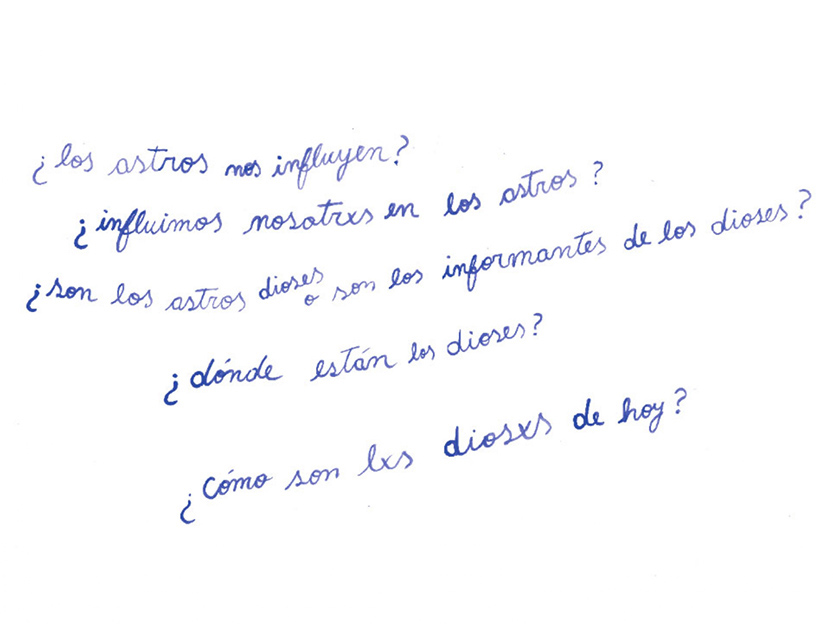 ¿los astros nos influyen?
¿influimos nosotrxs en los astros?
¿son los astros dioses o son los informantes de los dioses?
¿dónde están los dioses?
¿cómo son lxs diosxs de hoy?